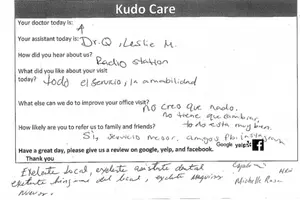 Kudo Care
Your doctor today is:
Your assistant today is: Dr. Q, Leslie M.
How did you hear about us?
Radio station
What did you like about your visit
today? todo el servicio, la amabilidad
What else can we do to improve your office visit?
No creo que nada.
no tiene que cambiar,
todo esta muy bien.
How likely are you to refer us to family and friends?
Si, servicio mejor, amigos
Have a great day, please give us a review on google, yelp, and facebook.
Google yelp f
Thank you
Exelente local, exelente asistente dental
exelente del local, exelente
Michelle